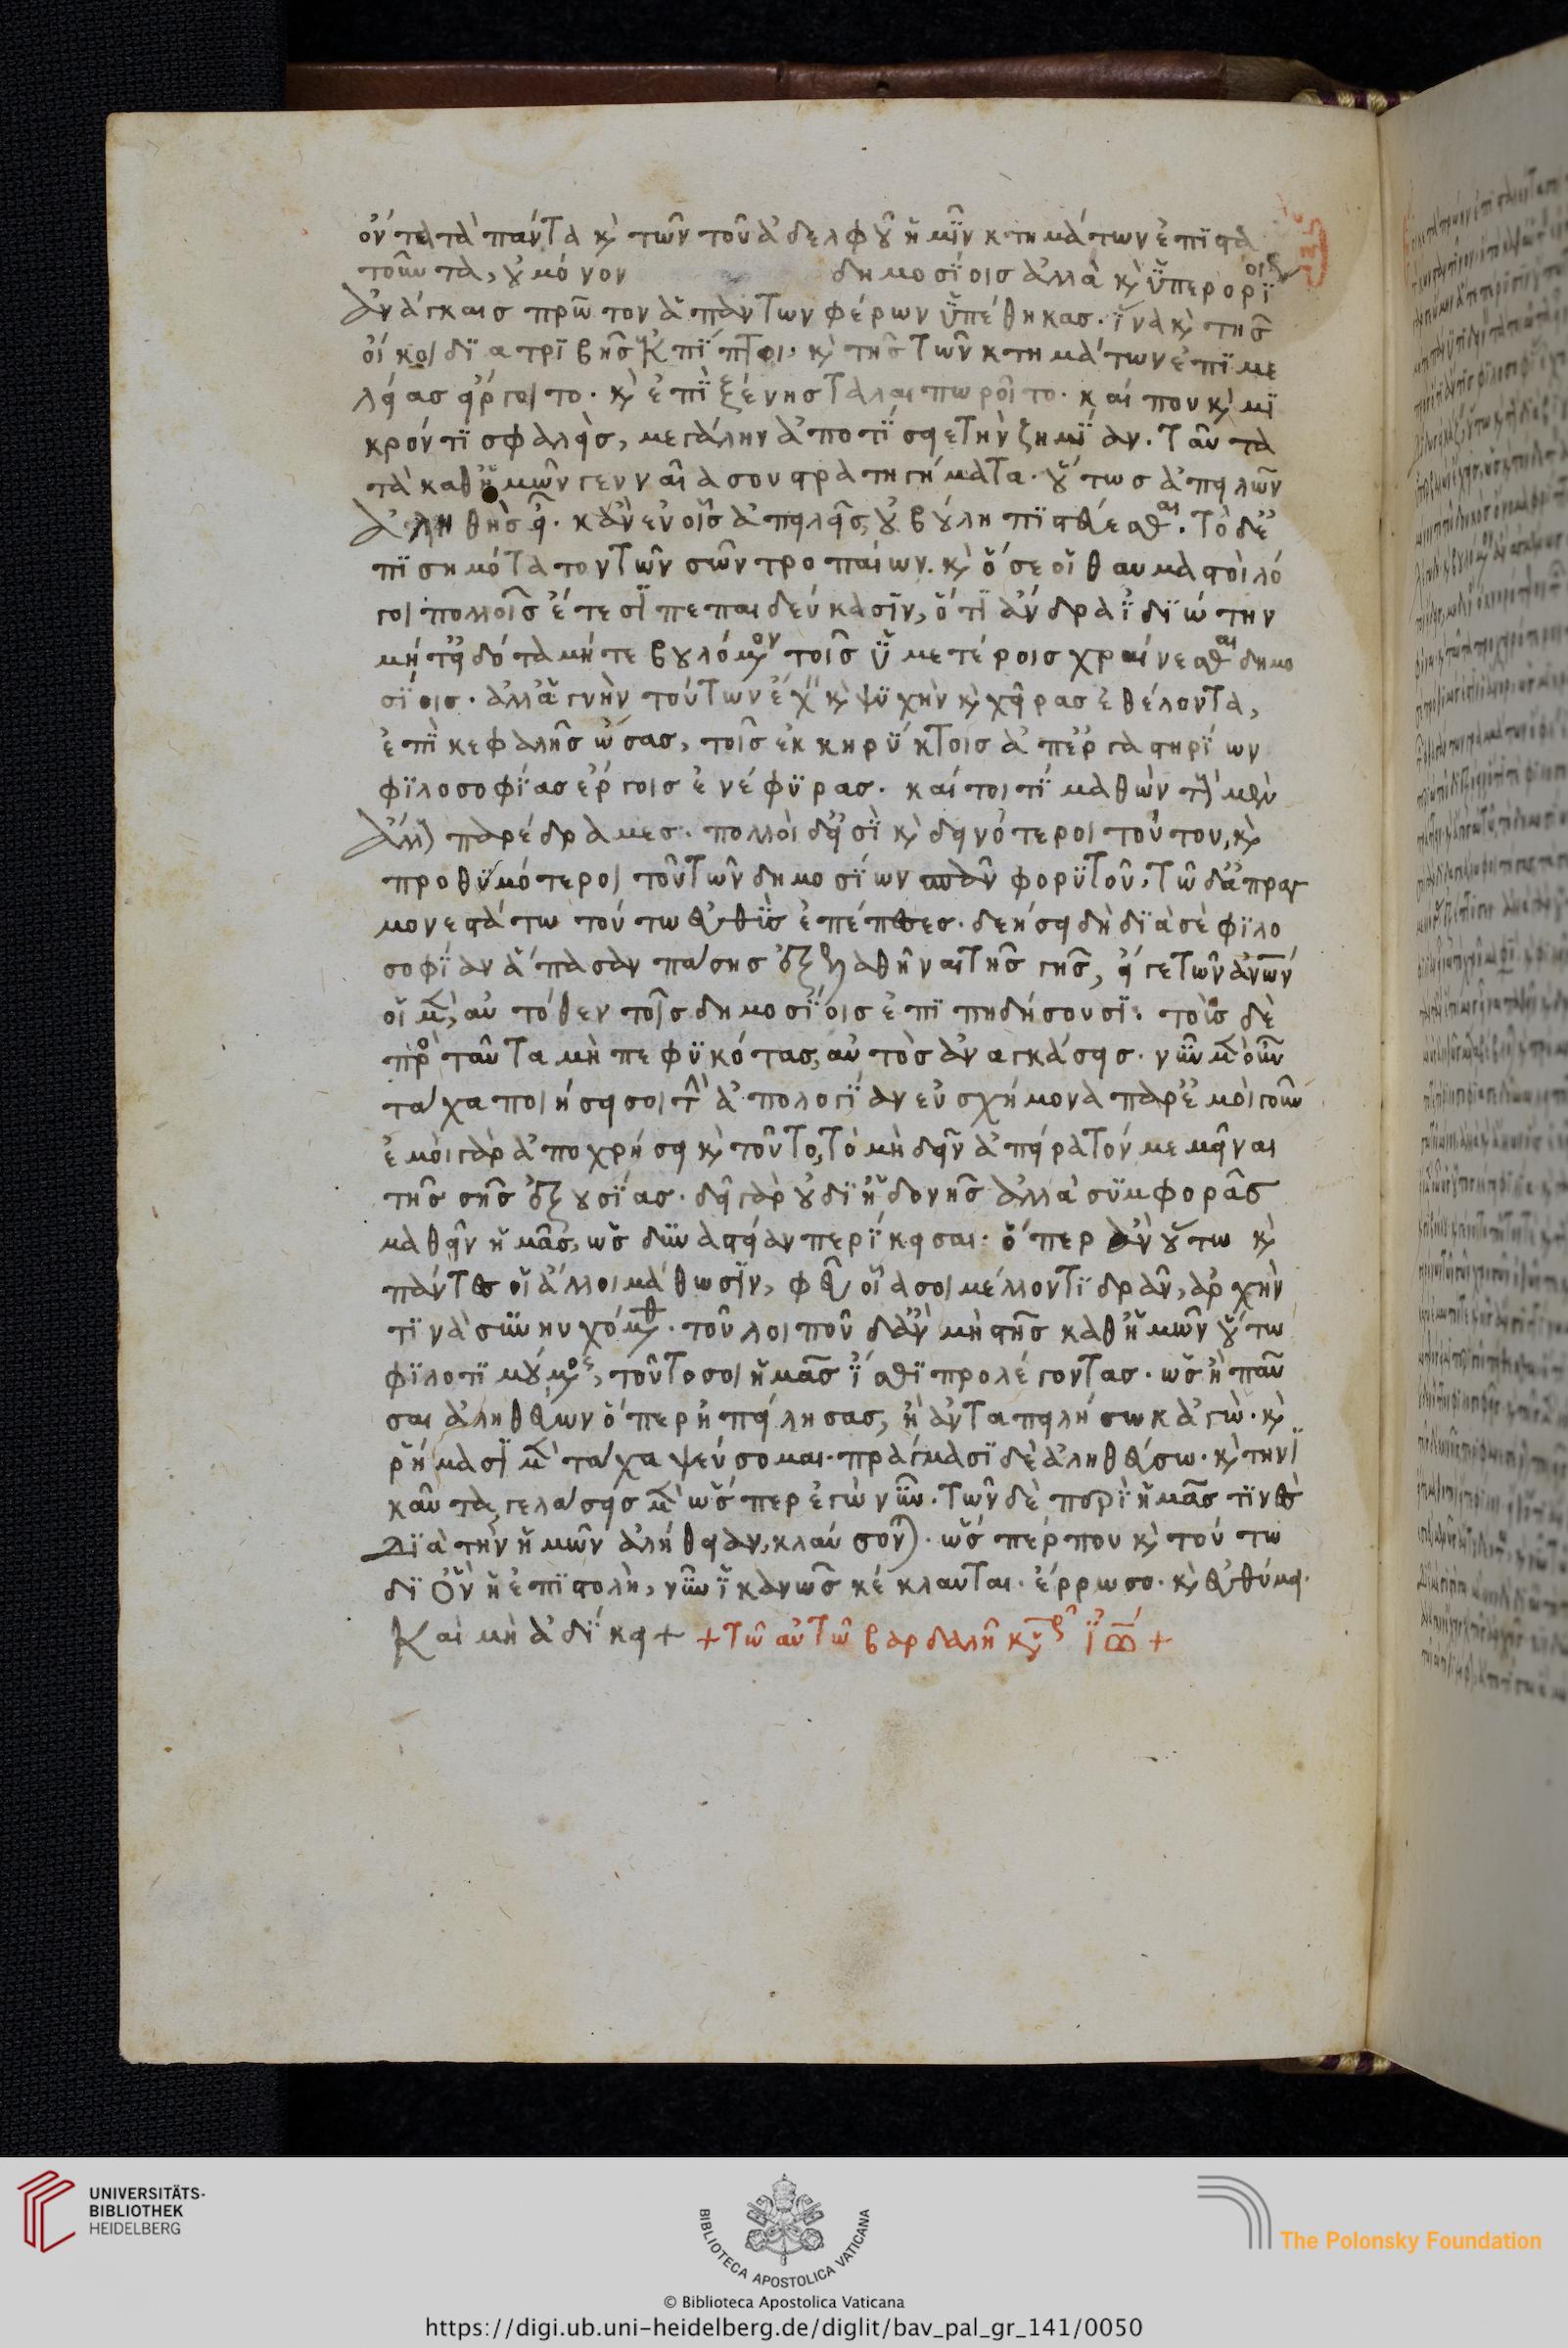 όντα τὰ πάντα κ̀ τῶν τοῦ ἀδελφοῦ ἡμῖν κτημάτων ἐπιστα
τοῦντα, οὐ μόνον δημοσίοις ἀλλὰ κ̀ ὑπερορίοις
ἀνάγκαις πρῶτον ἁπάντων φέρων ὑπέθηκας. ἵνα κ̀ τῆς
οἴκοι διατριβῆς ἐκπίπτοι. κ̀ τῆς τῶν κτημάτων ἐπιμε
λείας εἴργοιτο. κ̀ ἐπὶ ξένης ταλαιπωροῖτο. καί που κ̀ μι
κρόν τι σφαλεὶς, μεγάλην ἀποτίσειε τὴν ζημίαν. ταῦτα
τὰ καθ ἡμῶν γενναῖα σου στρατηγήματα. οὕτως ἀπειλῶν
ἀληθὴς εἶ. κἀν ἐν οἷς ἀπειλεῖς, οὐ βούλῃ πιστεύεσθαι. τὸ δ ἐ
πισημότατον τῶν σῶν τροπαίων. κ̀ ὅ σε οἱ θαυμαστοὶ λό
γοι πολλοῖς ἔτεσι πεπαιδεύκασιν, ὅτι ἄνδρα ἰδιώτην
μήτ εἰδότα μήτε βουλόμενον τοῖς ὑμετέροις χραίνεσθαι δημο
σίοις. ἀλλ ἁγνὴν τούτων ἔχειν κ̀ ψυχὴν κ̀ χεῖρας ἐθέλοντα,
ἐπὶ κεφαλῆς ὤσας, τοῖς ἐκκηρύκτοις ἀπ ἐργαστηρίων
φιλοσοφίας ἔργοις ἐνέφυρας. καίτοι τί μαθὼν τοὺς μὲν
ἄλλους παρέδραμες. πολλοὶ δ εἰσὶ κ̀ δεινότεροι τούτου, κ̀
προθυμότεροι τοῦ τῶν δημοσίων φορυτοῦ, τῶ δ ἀπραγ
μονεστάτω τούτω εὐθὺς ἐπέπεσες. δεήσει δὴ διὰ σὲ φιλο
σοφίαν ἅπασαν πάσης ἐξελαθῆναι τῆς γῆς, εἴ γε τῶν ἀνων
οἱ μὲν, αὐτόθεν τοῖς δημοσίοις ἐπιπηδήσουσι. τοῖς δὲ
πρὸς ταῦτα μὴ πεφυκότας, αὐτὸς ἀναγκάσεις. νῦν μὲν οὖν
τάχα ποιήσει σοι τὴν ἀπολογίαν εὐσχήμονα παρ ἐμοὶ γοῦν
ἐμοὶ γὰρ ἀποχρήσει κ̀ τοῦτο, τὸ μὴ δεῖν ἀπείρατόν με μεῖναι
τῆς σῆς ἐξουσίας. δεῖ γὰρ οὐ δι ἡδονῆς ἀλλὰ συμφορᾶς
μαθεῖν ἡμᾶς, ὡς δυναστείαν περίκεισαι. ὅπερ ἂν οὕτω κ̀
πάντες οἱ ἄλλοι μάθωσιν, φεῦ οἵα σοι μέλλοντι δρᾶν, ἀρχήν
τινα συνηυχόμεθα. τοῦ λοιποῦ δ ἂν μὴ στῇς καθ ἡμῶν οὕτω
φιλοτιμούμενος, τοῦτο σοι ἡμᾶς ἴσθι προλέγοντας. ὡς ἢ παῦ
σαι ἀληθεύων ὅπερ ἠπείλησας, ἢ ἀνταπειλήσω κἀγὼ. κ̀
ῥήμασι μὲν τάχα ψεύσομαι. πράγμασι δὲ ἀληθεύσω. κ̀ τηνι
καῦτα, γελάσεις μὲν ὥσπερ ἐγὼ νῦν. τῶν δὲ περὶ ἡμᾶς τινες
διὰ τὴν ἡμῶν ἀλήθειαν, κλαύσονται. ὥσπερ που κ̀ τούτω
δι ὃν ἡ ἐπιστολὴ, νῦν ἱκανῶς κέκλαυται. ἔρρωσο. κ̀ εὐθύμει.
Καὶ μὴ ἀδίκει + + τῶ αὐτῶ βαρδαλῆ κυρῶ ἰω +
UNIVERSITÄTS-
BIBLIOTHEK
HEIDELBERG
BIBLIOTECA APOSTOLICA VATICANA
The Polonsky Foundation
© Biblioteca Apostolica Vaticana
https://digi.ub.uni-heidelberg.de/diglit/bav_pal_gr_141/0050